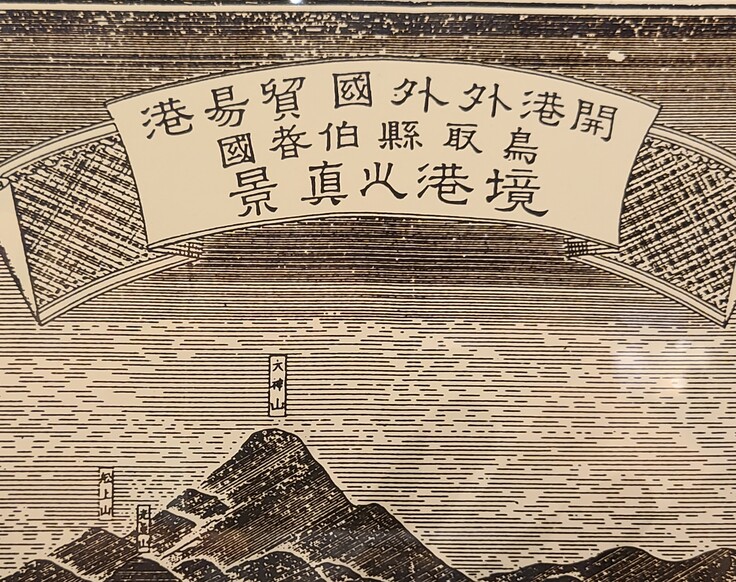 開港外外國貿易港
鳥取縣伯耆國
境港之真景
大神山
船上山